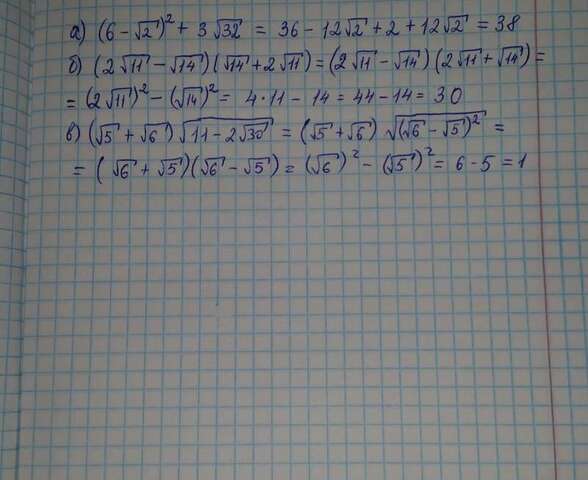 а) (6 - √2)² + 3√32 = 36 - 12√2 + 2 + 12√2 = 38
б) (2√11 - √14)(√14 + 2√11) = (2√11 - √14)(2√11 + √14) =
= (2√11)² - (√14)² = 4·11 - 14 = 44 - 14 = 30
в) (√5 + √6) √(11 - 2√30) = (√5 + √6) √((√6 - √5)²) =
= (√6 + √5)(√6 - √5) = (√6)² - (√5)² = 6 - 5 = 1